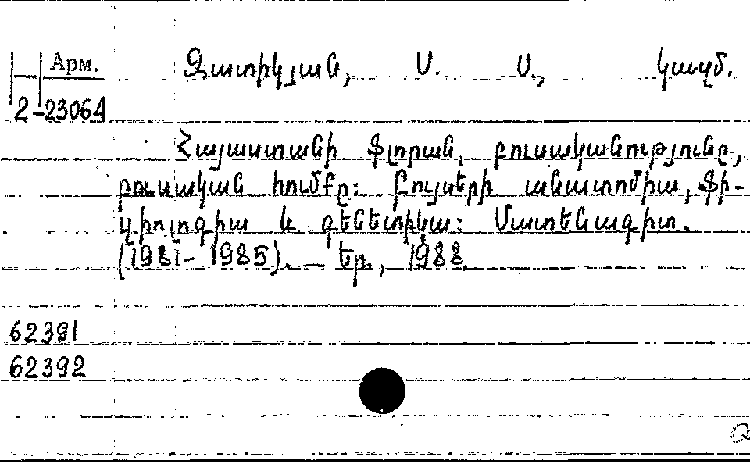 Арм.
Զատիկյան, Ս. Ս., կազմ.
2-23064
Հայաստանի ֆլորան, բուսականությունը,
բուսական հումքը: Բույսերի անատոմիա, ֆի-
զիոլոգիա և գենետիկա: Մատենագիտ.
(1981-1985). — Եր., 1988
62391
62392